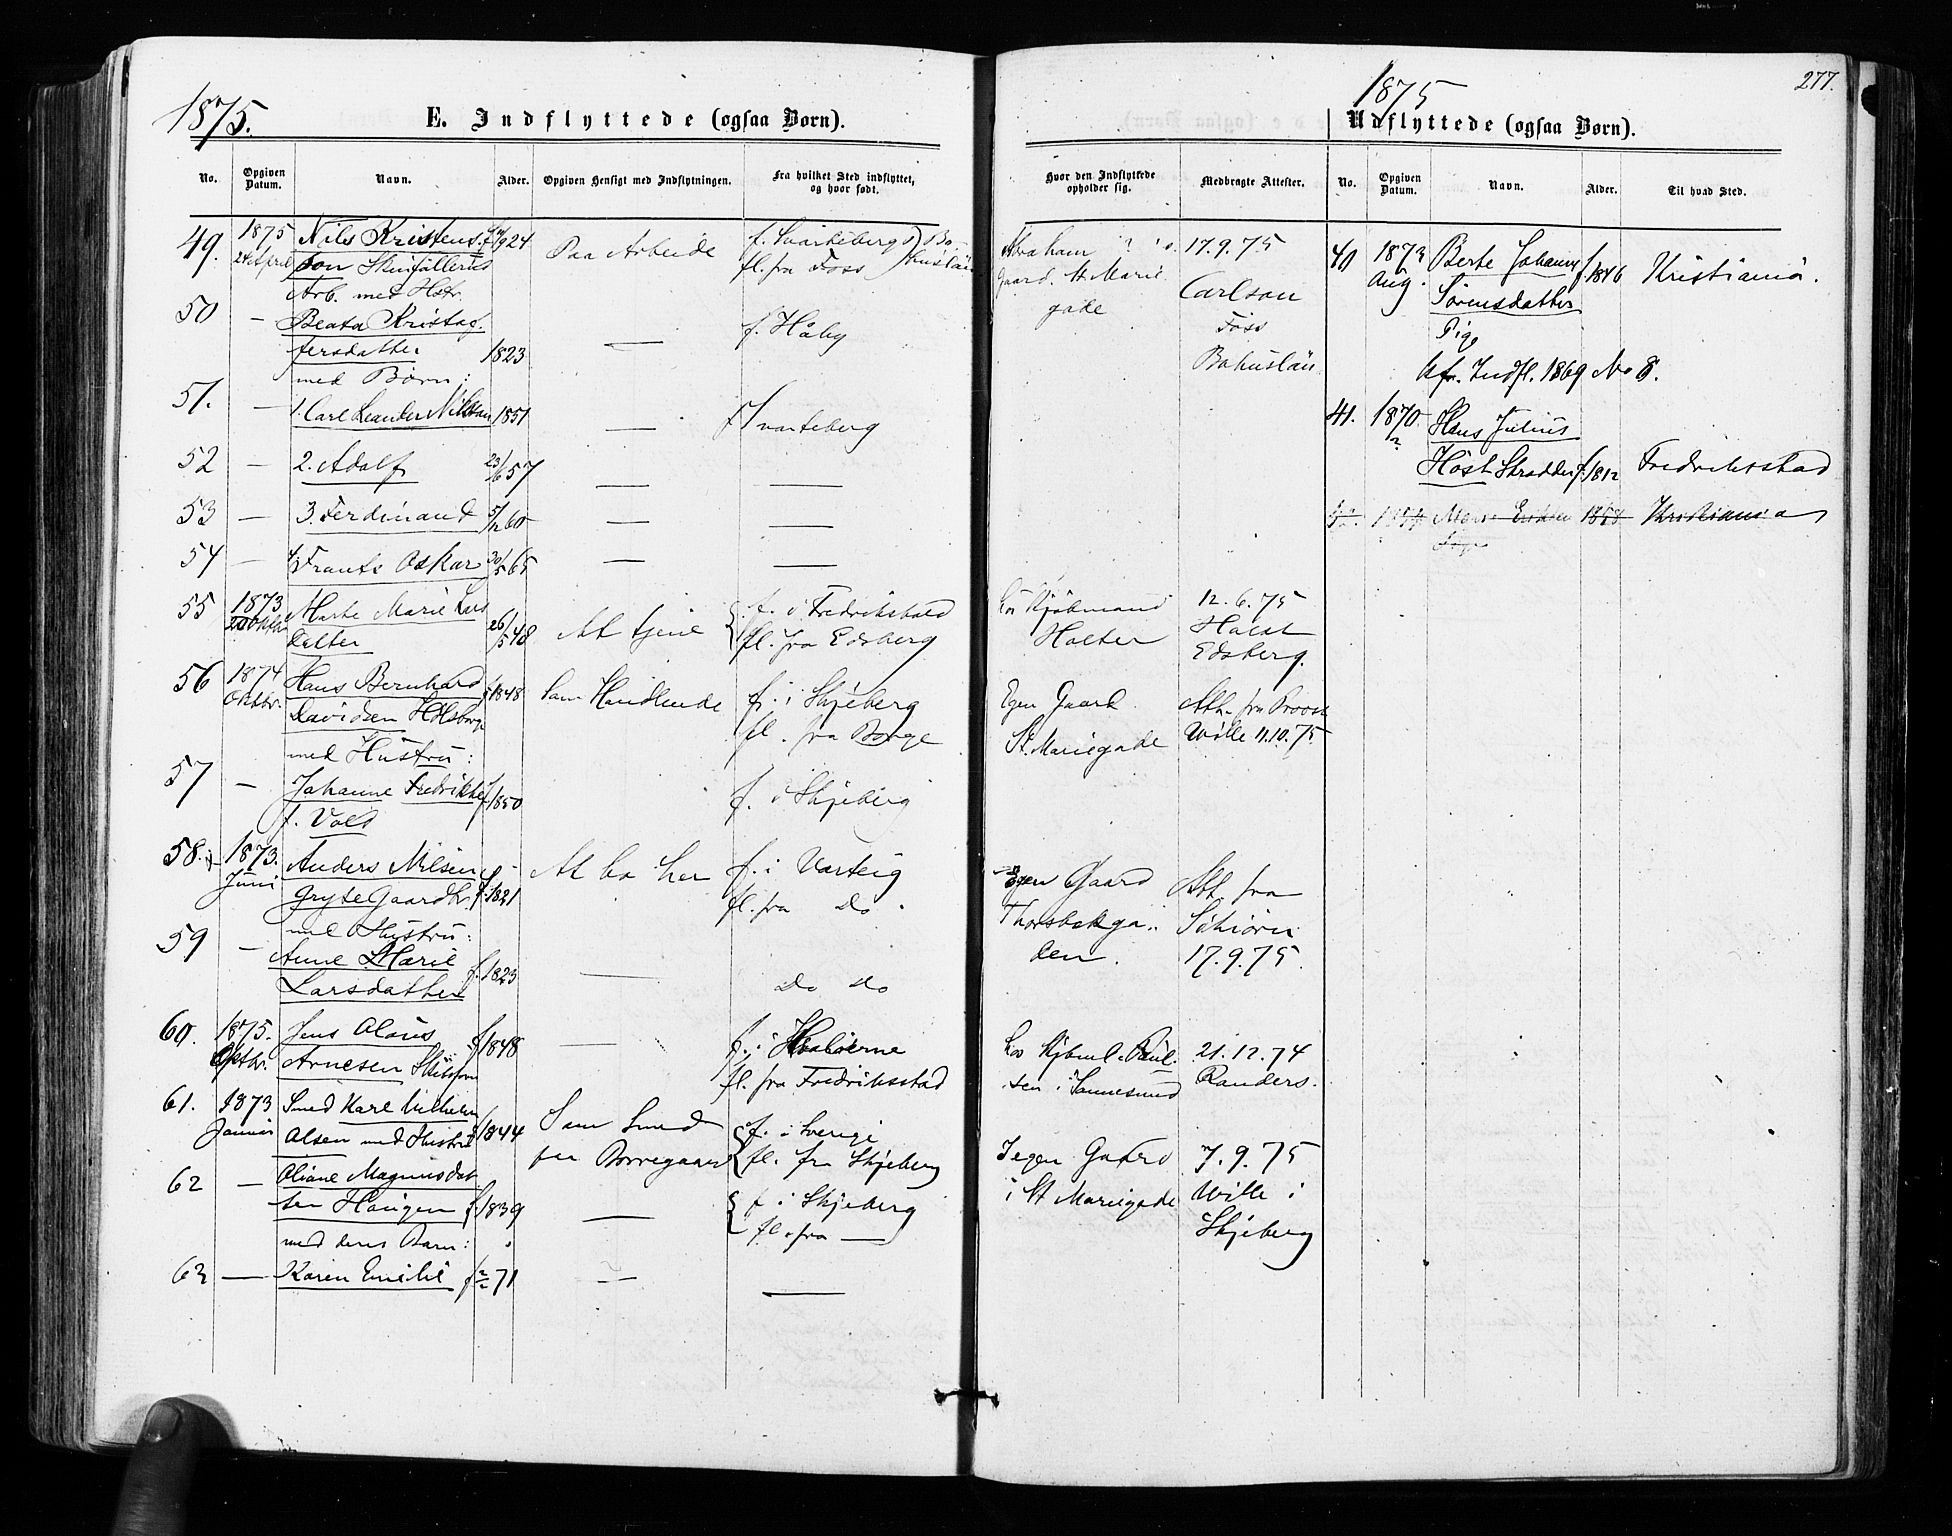 277.
1875.
E. Indflyttede (ogsaa Børn).
No.
Opgiven Datum.
Navn.
Alder.
Opgiven Hensigt med Indflytningen.
Fra hvilket Sted indflyttet, og hvor født.
49.
1875
24 April
Nils Kristen-
son
Arb. med Hstr.
Paa Arbeide
f. Svarteberg
fl. fra Foss
50
—
Beata Kristof-
fersdatter
med Børn:
1823
—
f. Håby
51.
—
1. Carl Leander Nilsson
1851
—
f. Svarteberg
52
—
2. Adolf
23/6 57
—
—
53
—
3. Ferdinand
5/12 60
—
—
54
—
4. Frants Oskar
30/5 65
—
—
55
1873
Marte Marie Lars
datter
26/5 48
At tjene
f. i Fredrikstad
fl. fra Edsberg
56
1874
Oktbr.
Hans Bernhard
Davidsen
med Hustru:
f. 1848
Som Handlende
f. i Skjeberg
fl. fra Borge
57
—
Johanne Fredrikke
f. Vold
f. 1850
f. i Skjeberg
58.
1873.
Juni
Anders Nilsen
Gryte Gaardbr.
med Hustru:
f. 1821
At bo her
f. i Varteig
fl. fra Do.
59
—
Anne Marie
Larsdatter
f. 1823
—
Do Do
60.
1875.
Oktbr.
Jens Olaus
Arnesen
f. 1848
—
f. i Hvaløerne
fl. fra Fredriksstad
61.
1873
Januar
Smed Karl Vilhelm
Olsen med Hustru
f. 1844
Som Smed
paa Borregaard
f. i Sverige
fl. fra Skjeberg
62
—
Oliane Magnusdat-
ter Haugen
med deres Barn:
f. 1839
—
f. i Skjeberg
fl. fra —
63
—
Karen Emilie
f. 2/2 71
—
—
1875
Hvor den Indflyttede opholder sig.
Medbragte Attester.
Abraham
gaard. St. Marie
gade
17.9.75
Carlson
Foss
Bohuslän
hos Kjøbmand
Holter
12.6.75
Holst
Edsberg.
Egen Gaard
St. Mariegade
Att. fra Provst
Wille 11.10.75
Egen Gaard
Thorsbekga-
den.
Att. fra
Schiørn
17.9.75.
hos Kjbmd. Paul-
sen i Sannesund
21.12.74
Randers.
I egen Gaard
i St Mariegade
7.9.75
Wille i
Skjeberg
Udflyttede (ogsaa Børn).
No.
Opgiven Datum.
Navn.
Alder.
Til hvad Sted.
40
1873
Aug.
Berte Johanne
Sørensdatter
Pige
f. 1846
Kristiania.
Cfr. Indfl. 1869 No 8.
41.
1870
Hans Julius
Høst Skrædder
f. 1812
Fredriksstad
1858
Kristiania